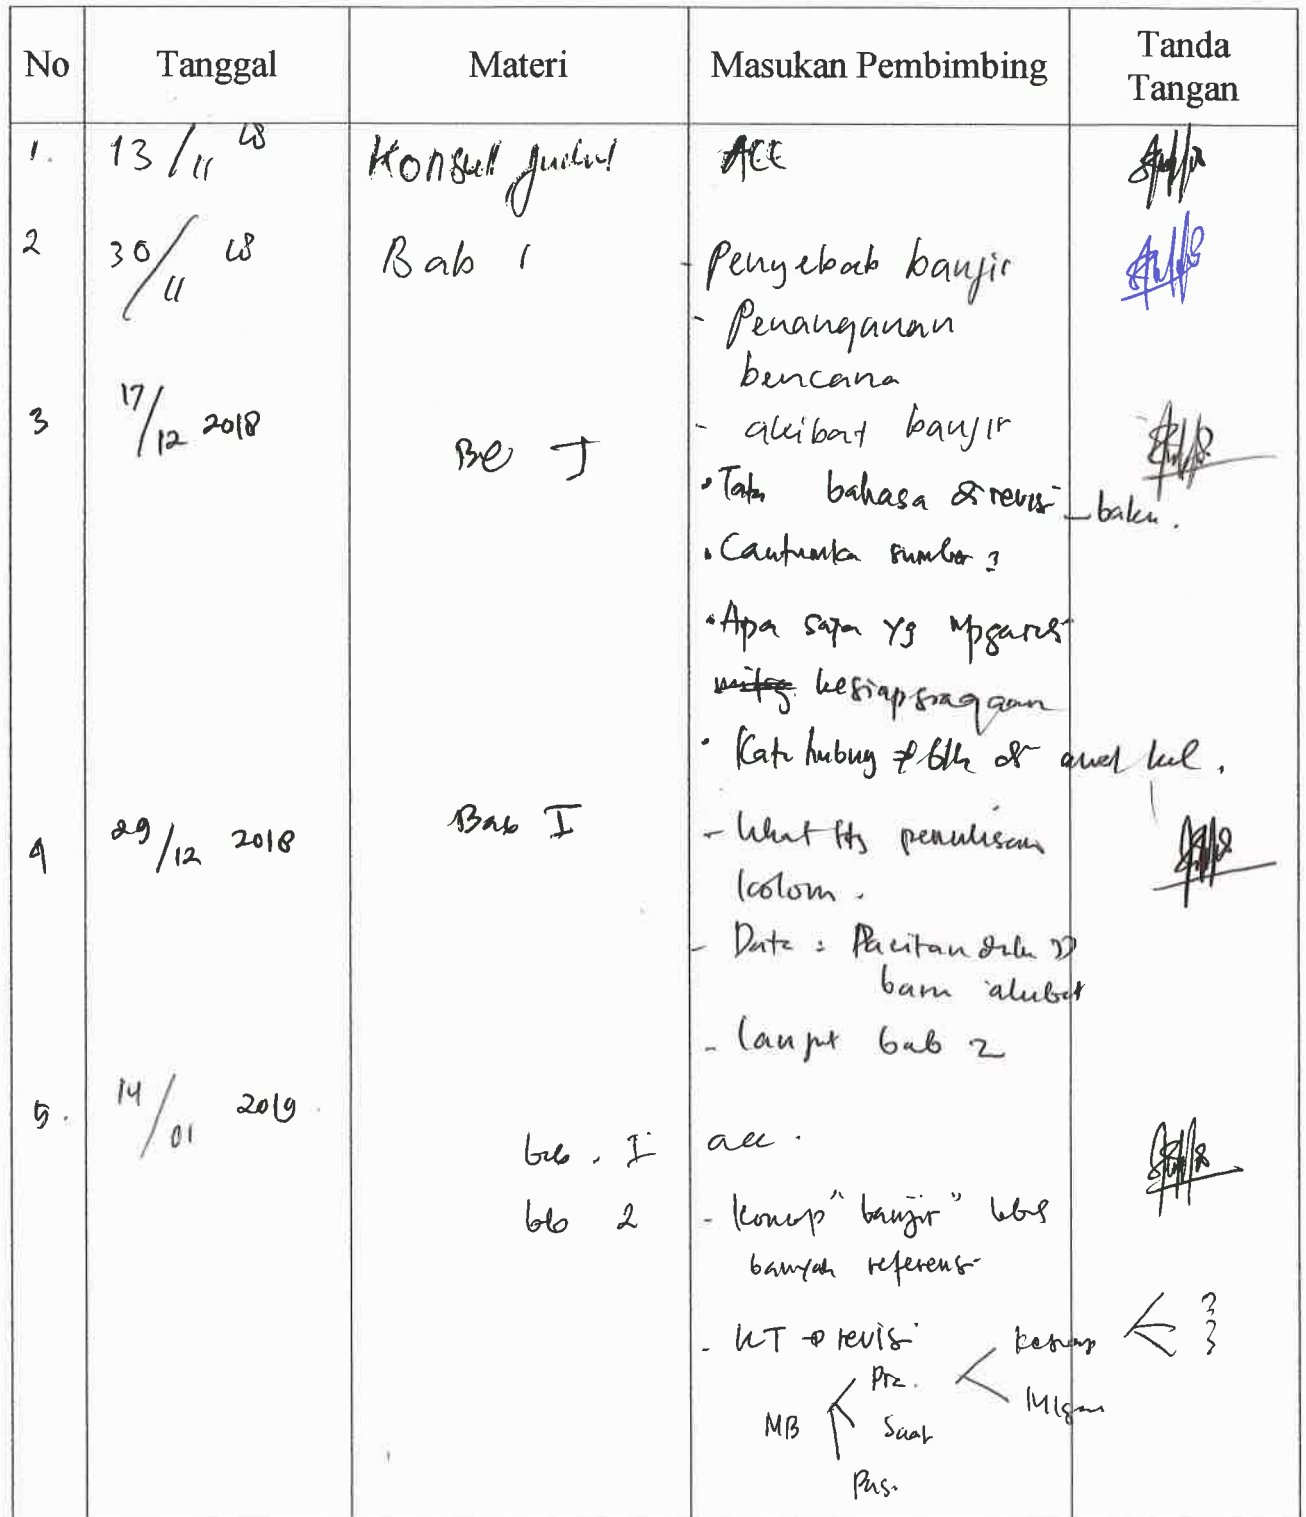 No Tanggal Materi Masukan Pembimbing Tanda Tangan
1. 13/11 18 Konsul judul ACC
2 30/11 18 Bab 1 - Penyebab banjir
- Penanganan
bencana
- akibat banjir
3 17/12 2018 Bab I
• Tata bahasa di revisi - baku.
• Cantumka sumber
• Apa saja yg mpgaruhi
kesiapsiagaan
• Kata hubung ≠ blh di awal kal.
4 29/12 2018 Bab I - Lihat penulisan
kolom.
- Data : Pacitan dulu
baru akibat
- lanjut bab 2
5. 14/01 2019
bab. I acc.
bab 2 - Konsep "banjir" lebih
banyak referensi
- KT → revisi
Pra. Kesiap
MB Saat Mitigasi
Pas.